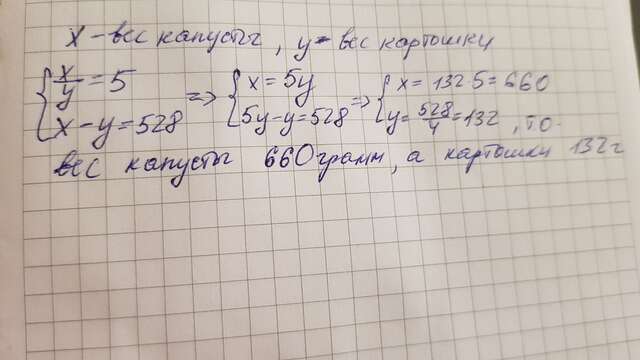 x - вес капусты, y - вес картошки
{ x/y = 5 => { x = 5y => { x = 132·5 = 660
{ x - y = 528 { 5y - y = 528 { y = 528/4 = 132, то
вес капусты 660 грамм, а картошки 132 г